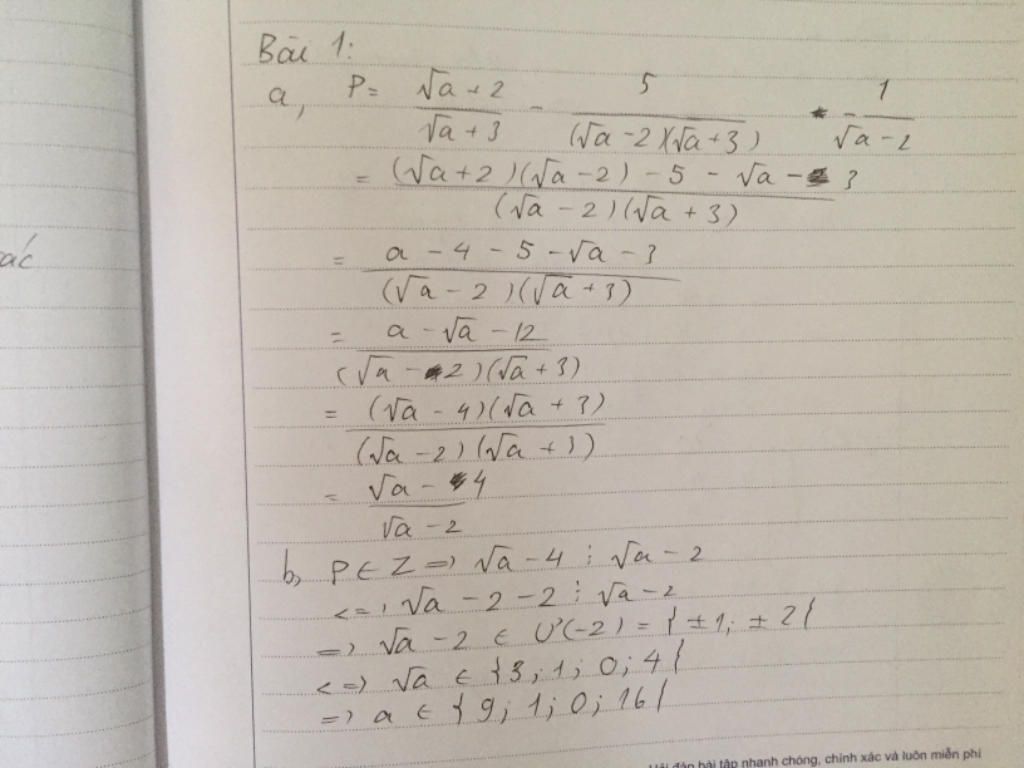 Bài 1:
a, P = \frac{√a + 2}{√a + 3} - \frac{5}{(√a - 2)(√a + 3)} - \frac{1}{√a - 2}
= \frac{(√a + 2)(√a - 2) - 5 - √a - 3}{(√a - 2)(√a + 3)}
= \frac{a - 4 - 5 - √a - 3}{(√a - 2)(√a + 3)}
ác
= \frac{a - √a - 12}{(√a - 2)(√a + 3)}
= \frac{(√a - 4)(√a + 3)}{(√a - 2)(√a + 3)}
= \frac{√a - 4}{√a - 2}
b, P ∈ Z => √a - 4 ⋮ √a - 2
<=> √a - 2 - 2 ⋮ √a - 2
=> √a - 2 ∈ Ư(-2) = {±1; ±2}
<=> √a ∈ {3; 1; 0; 4}
=> a ∈ {9; 1; 0; 16}
đáp bài tập nhanh chóng, chính xác và luôn miễn phí